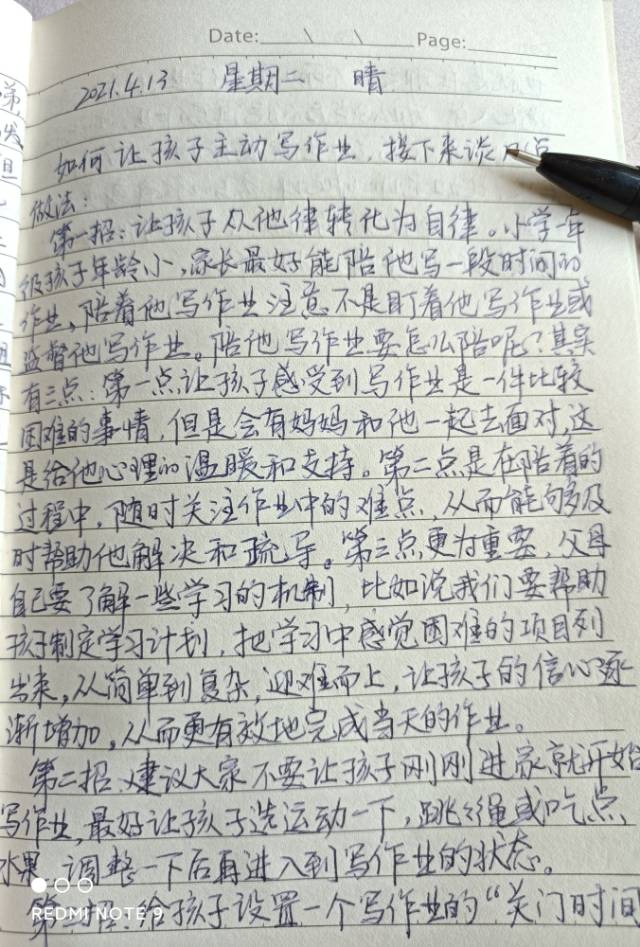 Date: \ \ Page:
2021.4.13 星期二 晴
如何让孩子主动写作业,接下来谈 点
做法:
第一招:让孩子从他律转化为自律。小学一年
级孩子年龄小,家长最好能陪他写一段时间的
作业,陪着他写作业注意不是盯着他写作业或
监督他写作业。陪他写作业要怎么陪呢?其实
有三点:第一点让孩子感受到写作业是一件比较
困难的事情,但是会有妈妈和他一起去面对,这
是给他心理的温暖和支持。第二点是在陪着的
过程中,随时关注作业中的难点,从而能够及
时帮助他解决和疏导。第三点更为重要,父母
自己要了解一些学习的机制,比如说我们要帮助
孩子制定学习计划,把学习中感觉困难的项目列
出来,从简单到复杂,迎难而上,让孩子的信心逐
渐增加,从而更有效地完成当天的作业。
第二招、建议大家不要让孩子刚刚进家就开始
写作业,最好让孩子先运动一下,跳跳绳或吃点
水果,调整一下后再进入到写作业的状态。
第三招:给孩子设置一个写作业的“关门时间
REDMI NOTE 9